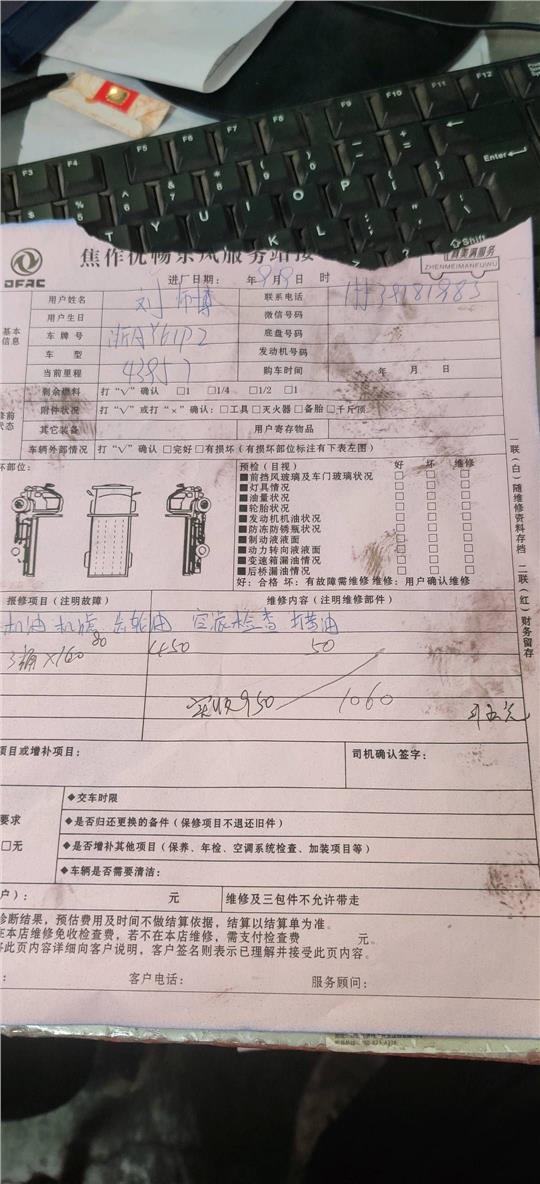 F3 F4 F5 F6 F7 F8 F9 F10 F11 F12
Enter
T Y U I O P
K L
Shift
DFAC
焦作优畅东风服务站接
真美满服务
ZHENMEIMANFUWU
进厂日期: 年 9月9日 时
基本信息
用户姓名 刘 联系电话
用户生日 微信号码
车牌号 底盘号码
车 型 发动机号码
当前里程 43957 购车时间 年 月 日
剩余燃料 打“√”确认 □1 □1/4 □1/2 □1
附件状况 打“√”或打“×”确认: □工具 □灭火器 □备胎 □千斤顶
其它装备 用户寄存物品
车辆外部情况 打“√”确认 □完好 □有损坏 (有损坏部位标注有下表左图)
坏部位:
预检 (目视) 好 坏 维修
■前挡风玻璃及车门玻璃状况 □ □ □
■灯具情况 □ □ □
■油量状况 □ □ □
■轮胎状况 □ □ □
■发动机机油状况 □ □ □
■防冻防锈瓶状况 □ □ □
■制动液液面 □ □ □
■动力转向液液面 □ □ □
■变速箱漏油情况 □ □ □
■后桥漏油情况 □ □ □
好: 合格 坏: 有故障需维修 维修: 用户确认维修
联(白)随维修资料存档 二联(红)财务留存
报修项目 (注明故障) 维修内容 (注明维修部件)
机油 机滤 齿轮油 空滤检查 打黄油
3桶×160 80 450 50
实收950 1060
项目或增补项目: 司机确认签字:
◆交车时限
要求 ◆是否归还更换的备件 (保修项目不退还旧件)
□无 ◆是否增补其他项目 (保养、年检、空调系统检查、加装项目等)
◆车辆是否需要清洁:
户): 元 维修及三包件不允许带走
诊断结果, 预估费用及时间不做结算依据, 结算以结算单为准。
在本店维修免收检查费, 若不在本店维修, 需支付检查费 元。
将此页内容详细向客户说明, 客户签名则表示已理解并接受此页内容。
: 客户电话: 服务顾问: